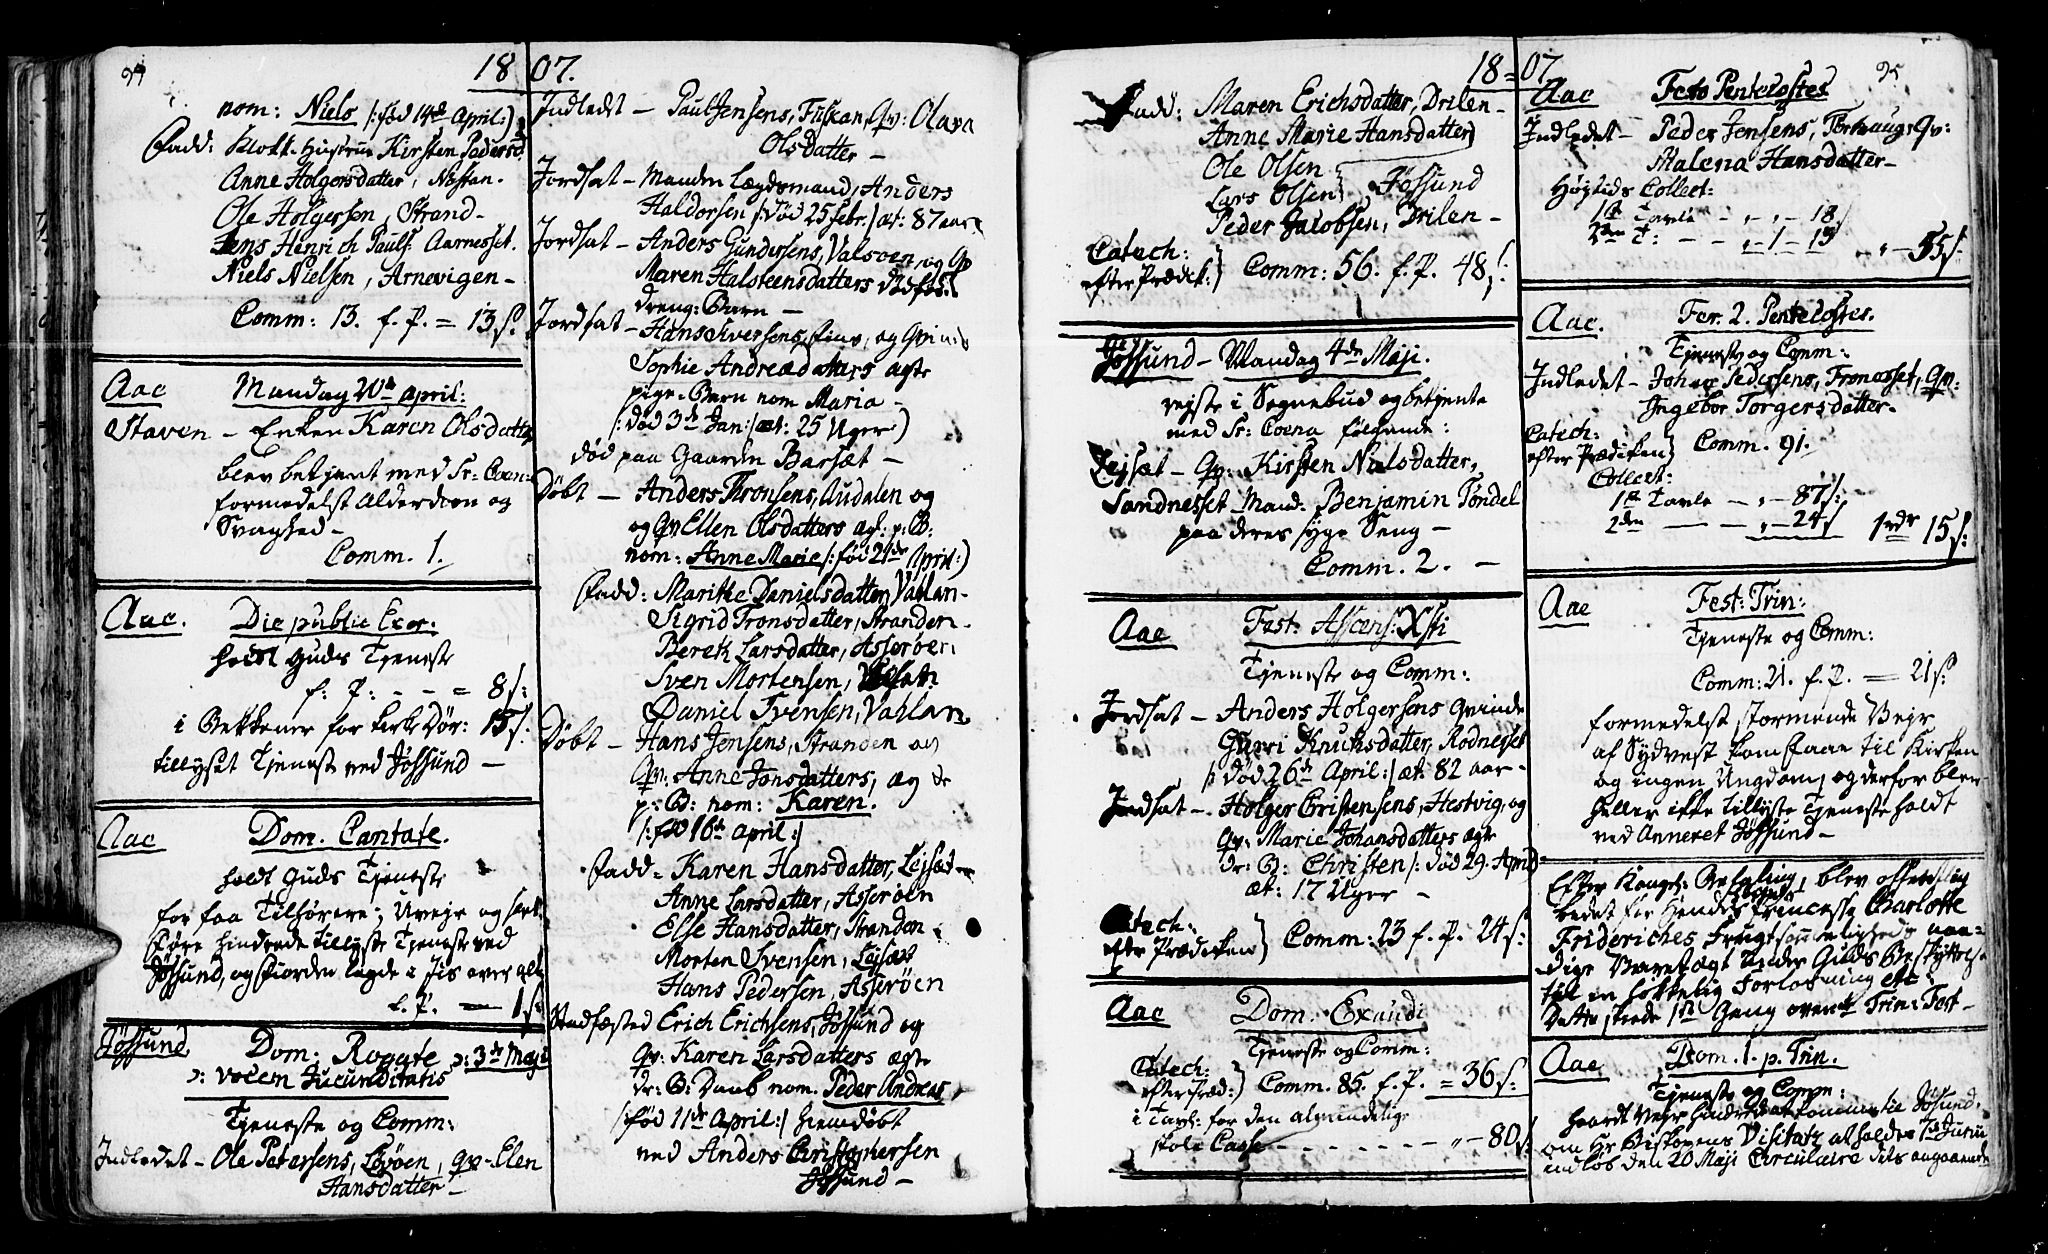 94
1807.
nom: Niels /: fød 14de April:/
Fadd: Klokk. Hustrue Kirsten Pedersd.
Anne Holgersdatter, Næsan.
Ole Holgersen, Strand-
Jens Henrich Pauls: Aarnesset.
Niels Nielsen, Arnevigen-
Comm: 13. f. P. = 13 s.
Aae Mandag 20de April:
Staven - Enken Karen Olsdatter
blev betjent med Sr: Coen:
formedelst Alderdom og
Svaghed-
Comm. 1.
Aae. Die public Exer:
holdt Guds Tjeneste
f: P: - - = 8 s:
i Bekkener for Kirke Dør: 15 s.
tillyset Tjeneste ved Jøssund -
Aae Dom. Cantate.
holdt Guds Tjeneste
for faa Tilhørere; Uvejr og
Føre hindrede tillyste Tjeneste ved
Jøssund, og Fiorden lagde i Jis over alt
f. P. = 1 s:
Jøssund Dom: Rogate ɔ: 3de Maji
ɔ: vocem Jucunditatis
Tjeneste og Comm:
Indledet - Ole Petersens, Løvøen, qv. Elen
Hansdatter -
Indledt - Paul Jensens, Fuskan, Qv: Olava
Olsdatter -
Jordsat - Manden Lægdsmand, Anders
Haldorsen /: død 25 febr:/ æt: 87 aar
Jordsat - Anders Gundersens, Valsøen, og Qv
Maren Halsteensdatters dødfød
dreng: Barn -
Jordsat - Hans Iversens, Finv, og Qvinde
Sophie Andreædatters ægte
pige-Barn nom Maria -
/: død 3de Jan:/ æt: 25 Uger:)
død paa Gaarden Barsæt -
Døbt - Anders Thronsens, Audalen og
og Qv Ellen Olsdatters ægt: p: B:
nom: Anne Marie /: fød 21de April:)
Fadd: Marithe Danielsdatter Vahlan-
Sigrid Tronsdatter, Stranden-
Bereth Larsdatter, Asserøen
Sven Mortensen,
Daniel Svensen, Vahlan
Døbt - Hans Jensens, Stranden og
Qv: Anne Jonsdatters, æg te
p: B: nom: Karen.
/: fød 16de April:/
Fadd = Karen Hansdatter, Lejsæt
Anne Larsdatter, Asserøen
Else Hansdatter, Stranden
Morten Svensen, Lejsæt
Hans Pedersen, Asserøen
Stadfæsted Erich Erichsens, Jøssund og
Qv: Karen Larsdatters ægte
dr: B: Daab nom. Peder Andreas
/: fød 11de April:/ hiemedøbt
ved Anders Christophersen
Jøssund -
1807
95
Fadd: Maren Erichsdatter, Drilen-
Anne Marie Hansdatter
Ole Olsen
Lars Olsen } Jøssund
Peder Jacobsen, Drilen-
Catech:
efter Prædik: } Comm: 56. f. P. 48 s:
Jøssund - Mandag 4de Maji.
rejste i Sognebud og betjente
med Sr: Coena følgende:
Lejsæt - Qv: Kirsten Nielsdatter,
Sandnesset Mand: Benjamin Tøndel
paa deres syge Seng -
Comm. 2. -
Aae Fest: Ascens: Xsti
Tjeneste og Comm:
Jordsat - Anders Holgersens Qvinde
Guri Knutsdatter, Rødnesset
/: død 26de April:/ æt: 82 aar-
Jordsat - Holger Cristensens, Hestvig, og
Qv: Marie Johansdatters ægte
dr: B: Christen /: død 29. April:
æt: 17 Uger -
Catech:
efter Prædiken } Comm: 23 f. P. 24 s:
Aae Dom: Exaudi
Tjeneste og Comm:
Catech:
efter Præd: } Comm. 85. f. P. = 36 s:
i Tavl: for den almindelige
Skole Casse - - - - - - „ - 80 s.
Aae Festo Pentekostes
Indledet - Peder Jensens, Torhaug, Qv:
Malena Hansdatter-
Højtids Collect:
1ste Tavle - „ - 18
2den T: - - „ 1 - 19 „ - 55 s:
Aae. Fer. 2. Pentekostes.
Tjeneste og Comm:
Indledet - Johan Pedersens, Fronesset, Qv:
Ingebor Torgersdatter-
Catech:
efter Prædiken } Comm. 91.
Collect:
1ste Tavle - „ - 87 s:
2den - - „ - 24 s 1 rdr 15 s:
Aae Fest: Trin:
Tjeneste og Comm:
Comm: 21. f. P. = 21 s:
formedelst stormende Vejr
af Sydvest kom faae til Kirken
og ingen Ungdom, og derfor blev
heller ikke tillyste Tjeneste holdt
ved Annexet Jøssund -
Efter Kongel: Befaling, blev offentlig
bedet for Hendes Princesse Charlotte
Friderichs Frugtsommelighed, naa-
dige Varetægt Under Guds Beskyttelse
til en lykkelig Forløsning etc:
Dette skede 1ste Gang oven Trin: Fest -
Aae Dom. 1. p. Trin.
Tjeneste og Comm:
haardt Vejr hindrede at komme til Jøssund.
om Hr Biskopens Visitatz at holdes Junii
indløb den 20 Maji Circulaire dets angaaende